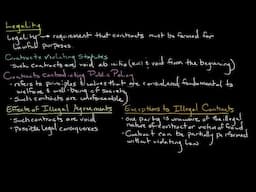 Legality
Legality → requirement that contracts must be formed for
lawful purposes.
Contracts Violating Statutes
• Such contracts are void ab initio (null & void from the beginning)
Contracts Contradicting Public Policy
• refers to principles & values that are considered fundamental to
welfare & well-being of society
• Such contracts are unenforceable
Effects of Illegal Agreements
• Such contracts are void
• possible legal consequences
Exceptions to Illegal Contracts
• one party is unaware of the illegal
nature of contract or victim of fraud
• Contract can be partially performed
without violating law